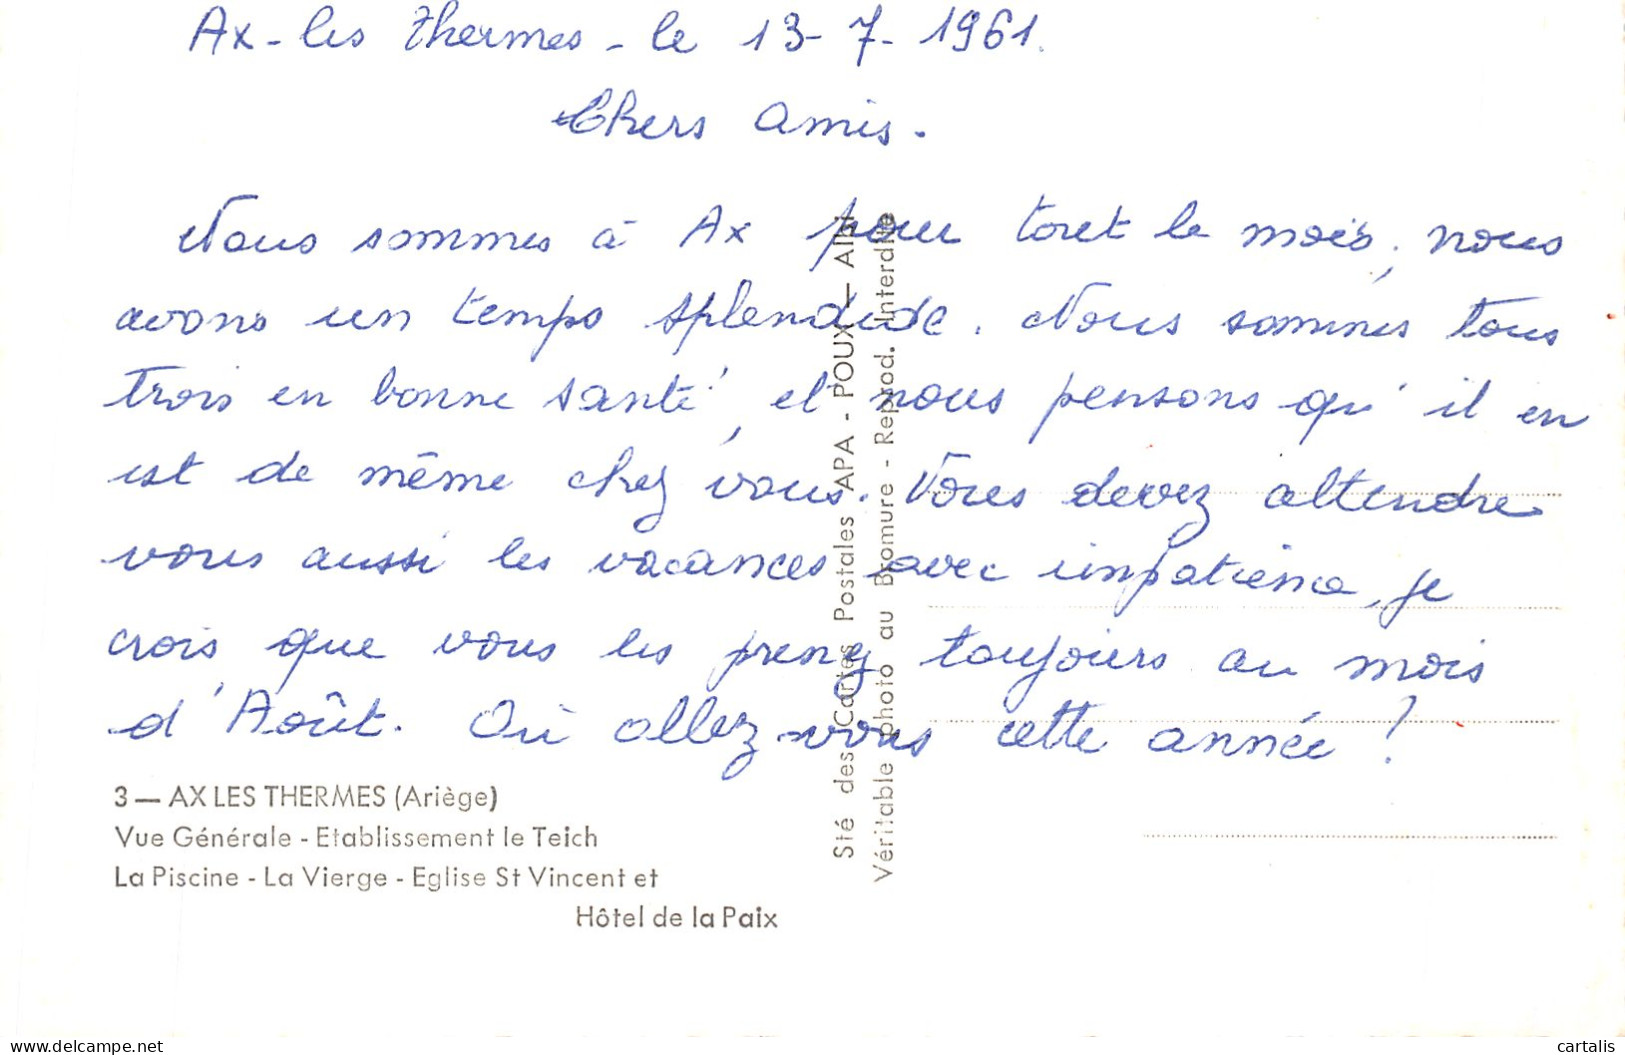 Ax-les Thermes - le 13-7-1961.
Chers Amis.
Nous sommes à Ax pour tout le mois, nous
avons un temps splendide. Nous sommes tous
trois en bonne santé, et nous pensons qu'il en
est de même chez vous. Vous devez attendre
vous aussi les vacances avec impatience, je
crois que vous les prenez toujours au mois
d'Août. Où allez-vous cette année ?
3 — AX LES THERMES (Ariège)
Vue Générale - Etablissement le Teich
La Piscine - La Vierge - Eglise St Vincent et
Hôtel de la Paix
Sté des Cartes Postales APA - POUX — Albi
Véritable photo au Bromure - Reprod. Interdite
www.delcampe.net
cartalis